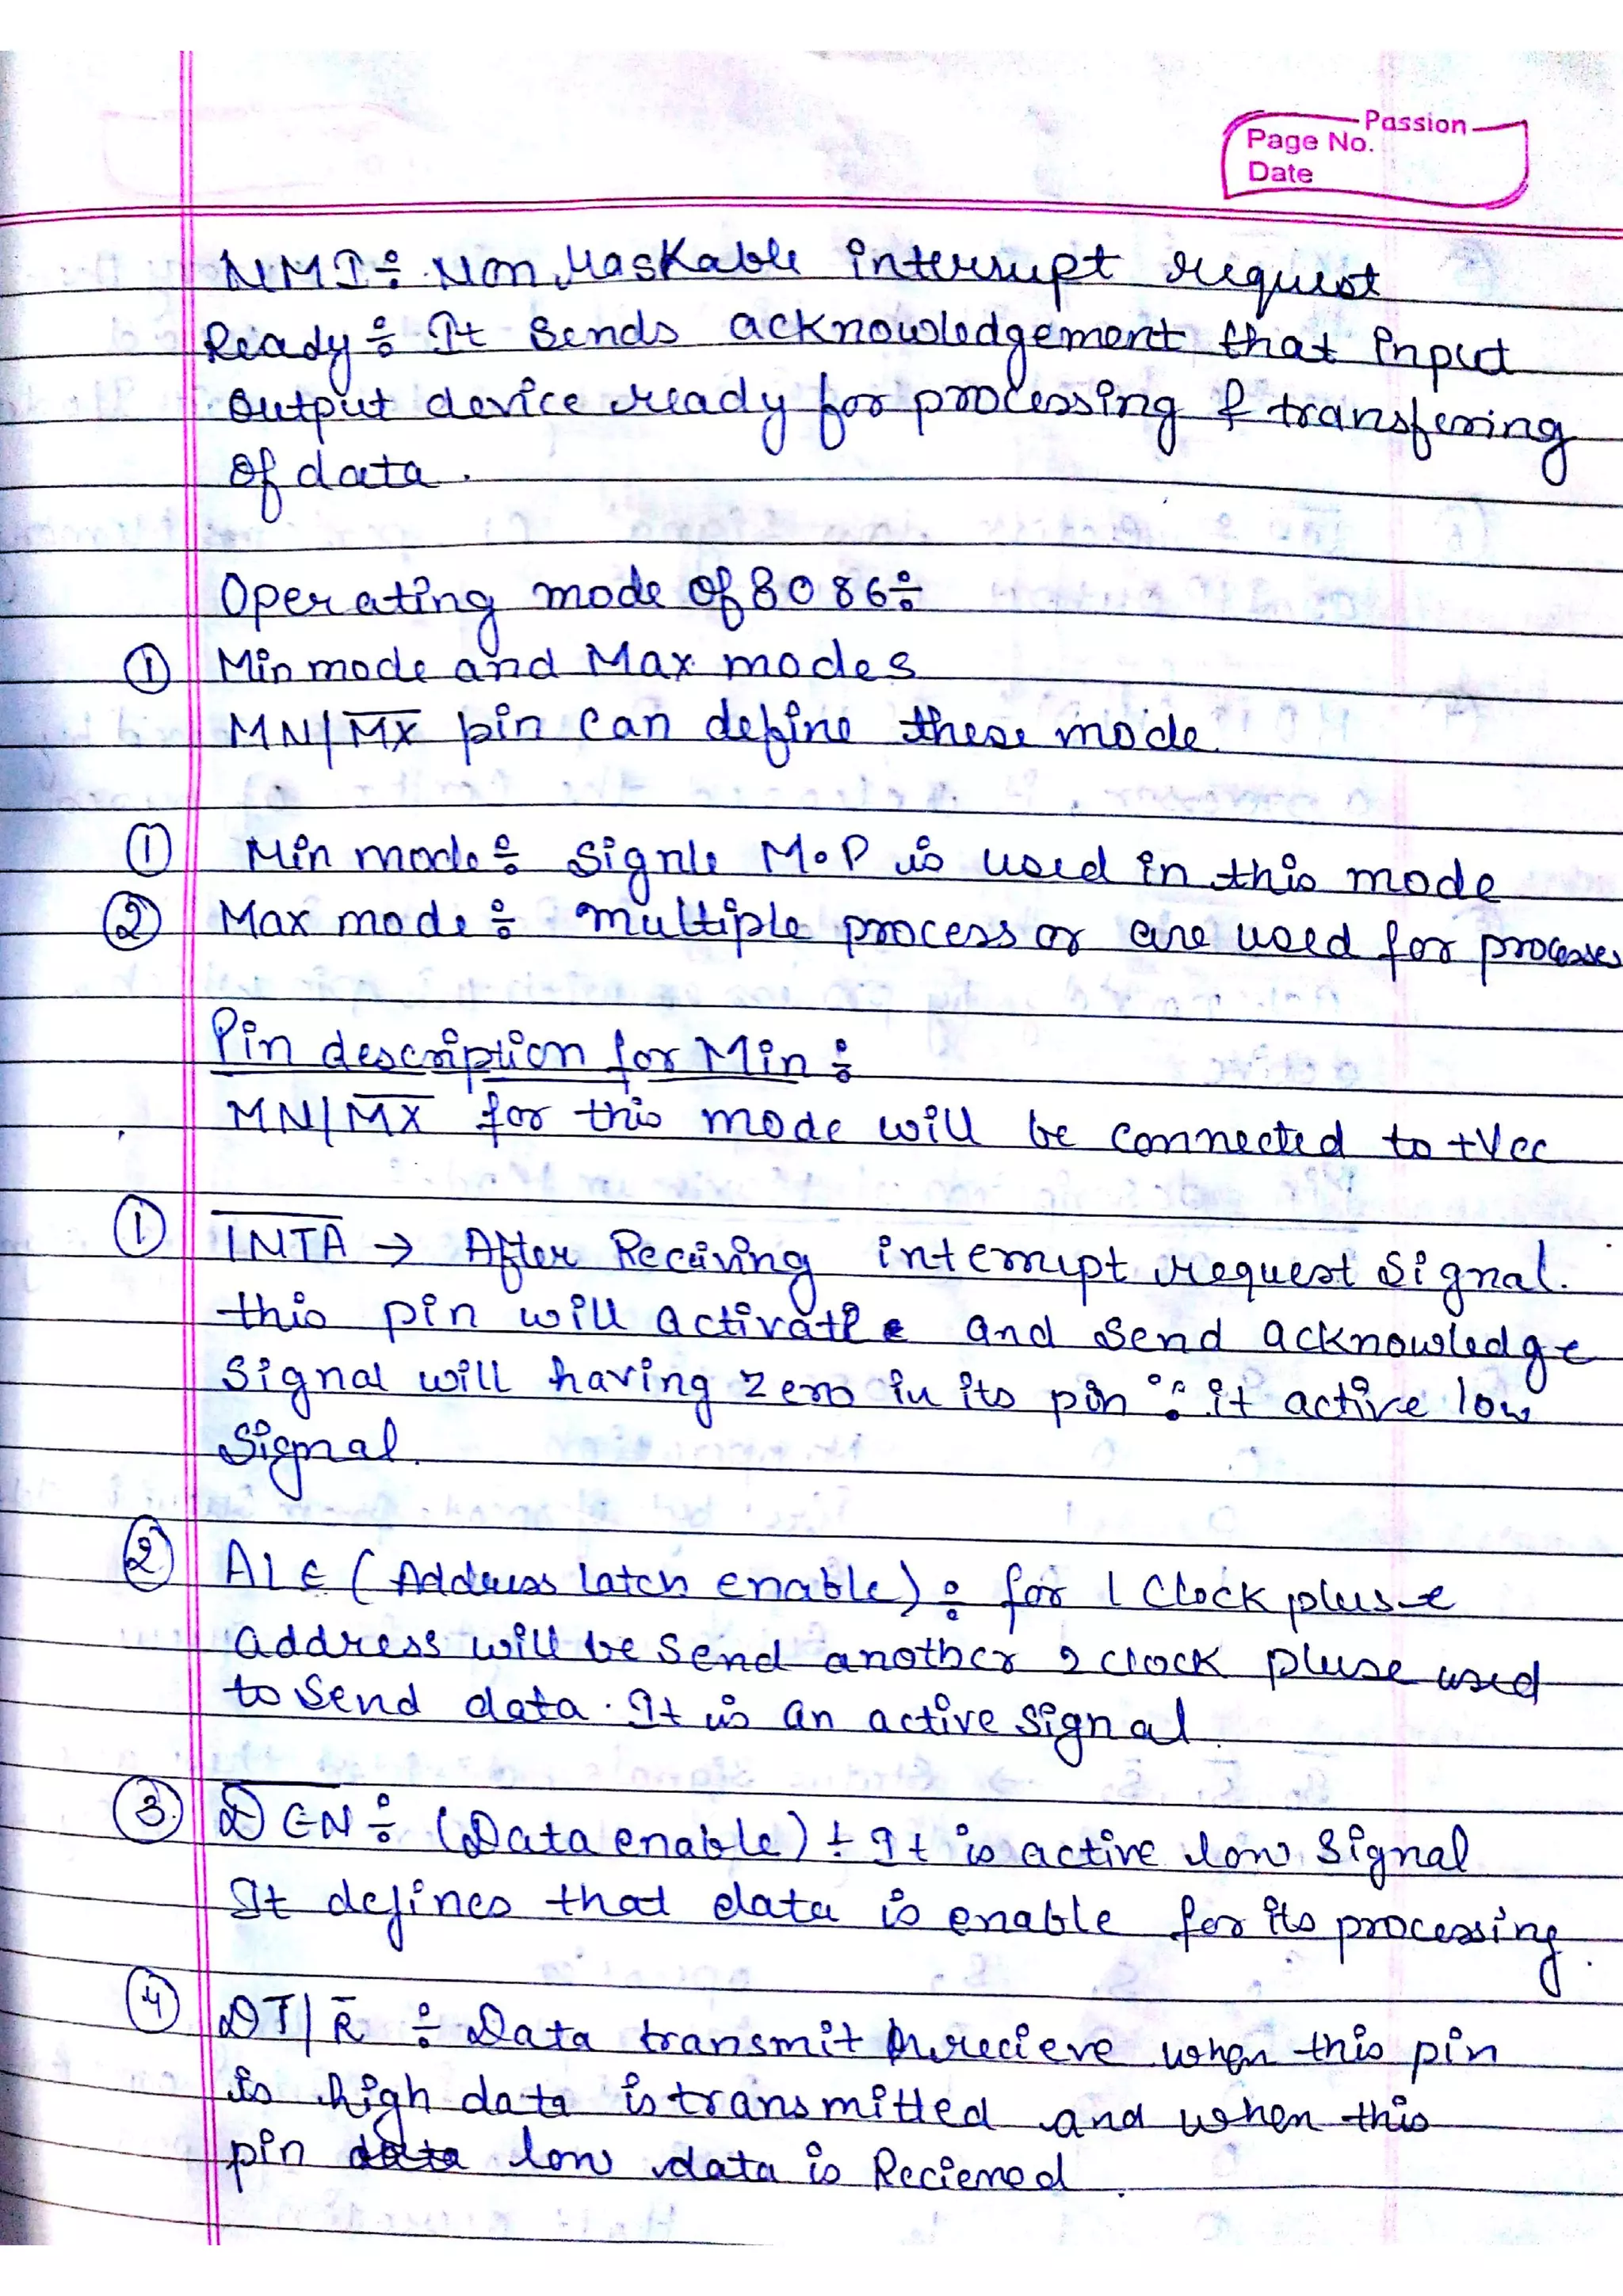 Passion
Page No.
Date
NMI÷ Non Maskable interrupt request
Ready÷ It sends acknowledgement that input
output device ready for processing & transfering
of data.
Operating mode of 8086÷
① Min mode and Max modes
MN/M̅X̅ pin can define these mode.
① Min mode÷ signle M.P is used in this mode
② Max mode÷ multiple processor are used for processes
Pin description for Min÷
MN/M̅X̅ for this mode will be connected to +Vcc
① I̅N̅T̅A̅ → After Receiving interrupt request signal.
this pin will activate and send acknowledge
signal will having zero in its pin ∵ it active low
signal.
② ALE (Address latch enable)÷ for 1 clock pluse
address will be send another 2 clock pluse used
to send data. It is an active signal.
③ D̅E̅N̅÷ (Data enable)÷ It is active low signal
It defines that data is enable for its processing.
④ DT/R̅ ÷ Data transmit recieve when this pin
is high data is transmitted and when this
pin low data is Recieved.